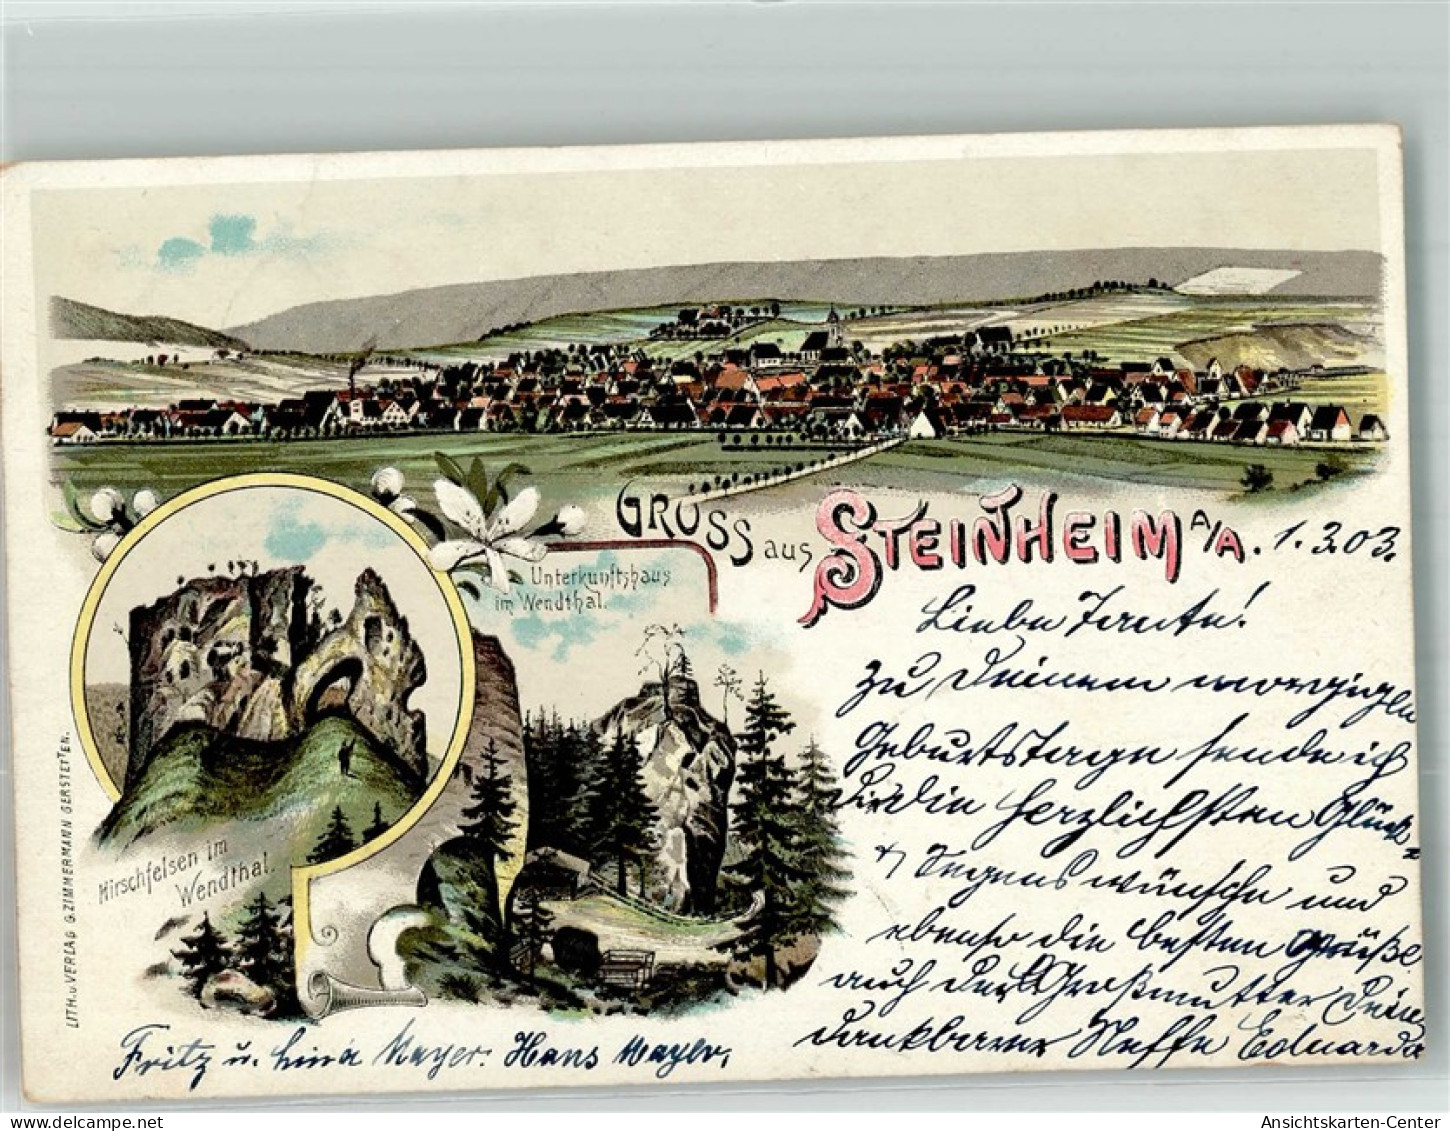 GRUSS aus STEINHEIM A/A. 1.3.03.
Unterkunftshaus
im Wendthal.
Liebe Tante!
Zu Deinem morgigen
Geburtstage sende ich
Dir die herzlichsten Glück-
& Segenswünsche und
ebenso die besten Grüße
auch der Großmutter Dein
dankbarer Neffe Eduard
Hirschfelsen im
Wendthal.
LITH. u. VERLAG G. ZIMMERMANN GERSTETTEN.
Fritz u. Lina Mayer. Hans Mayer,
Ansichtskarten-Center